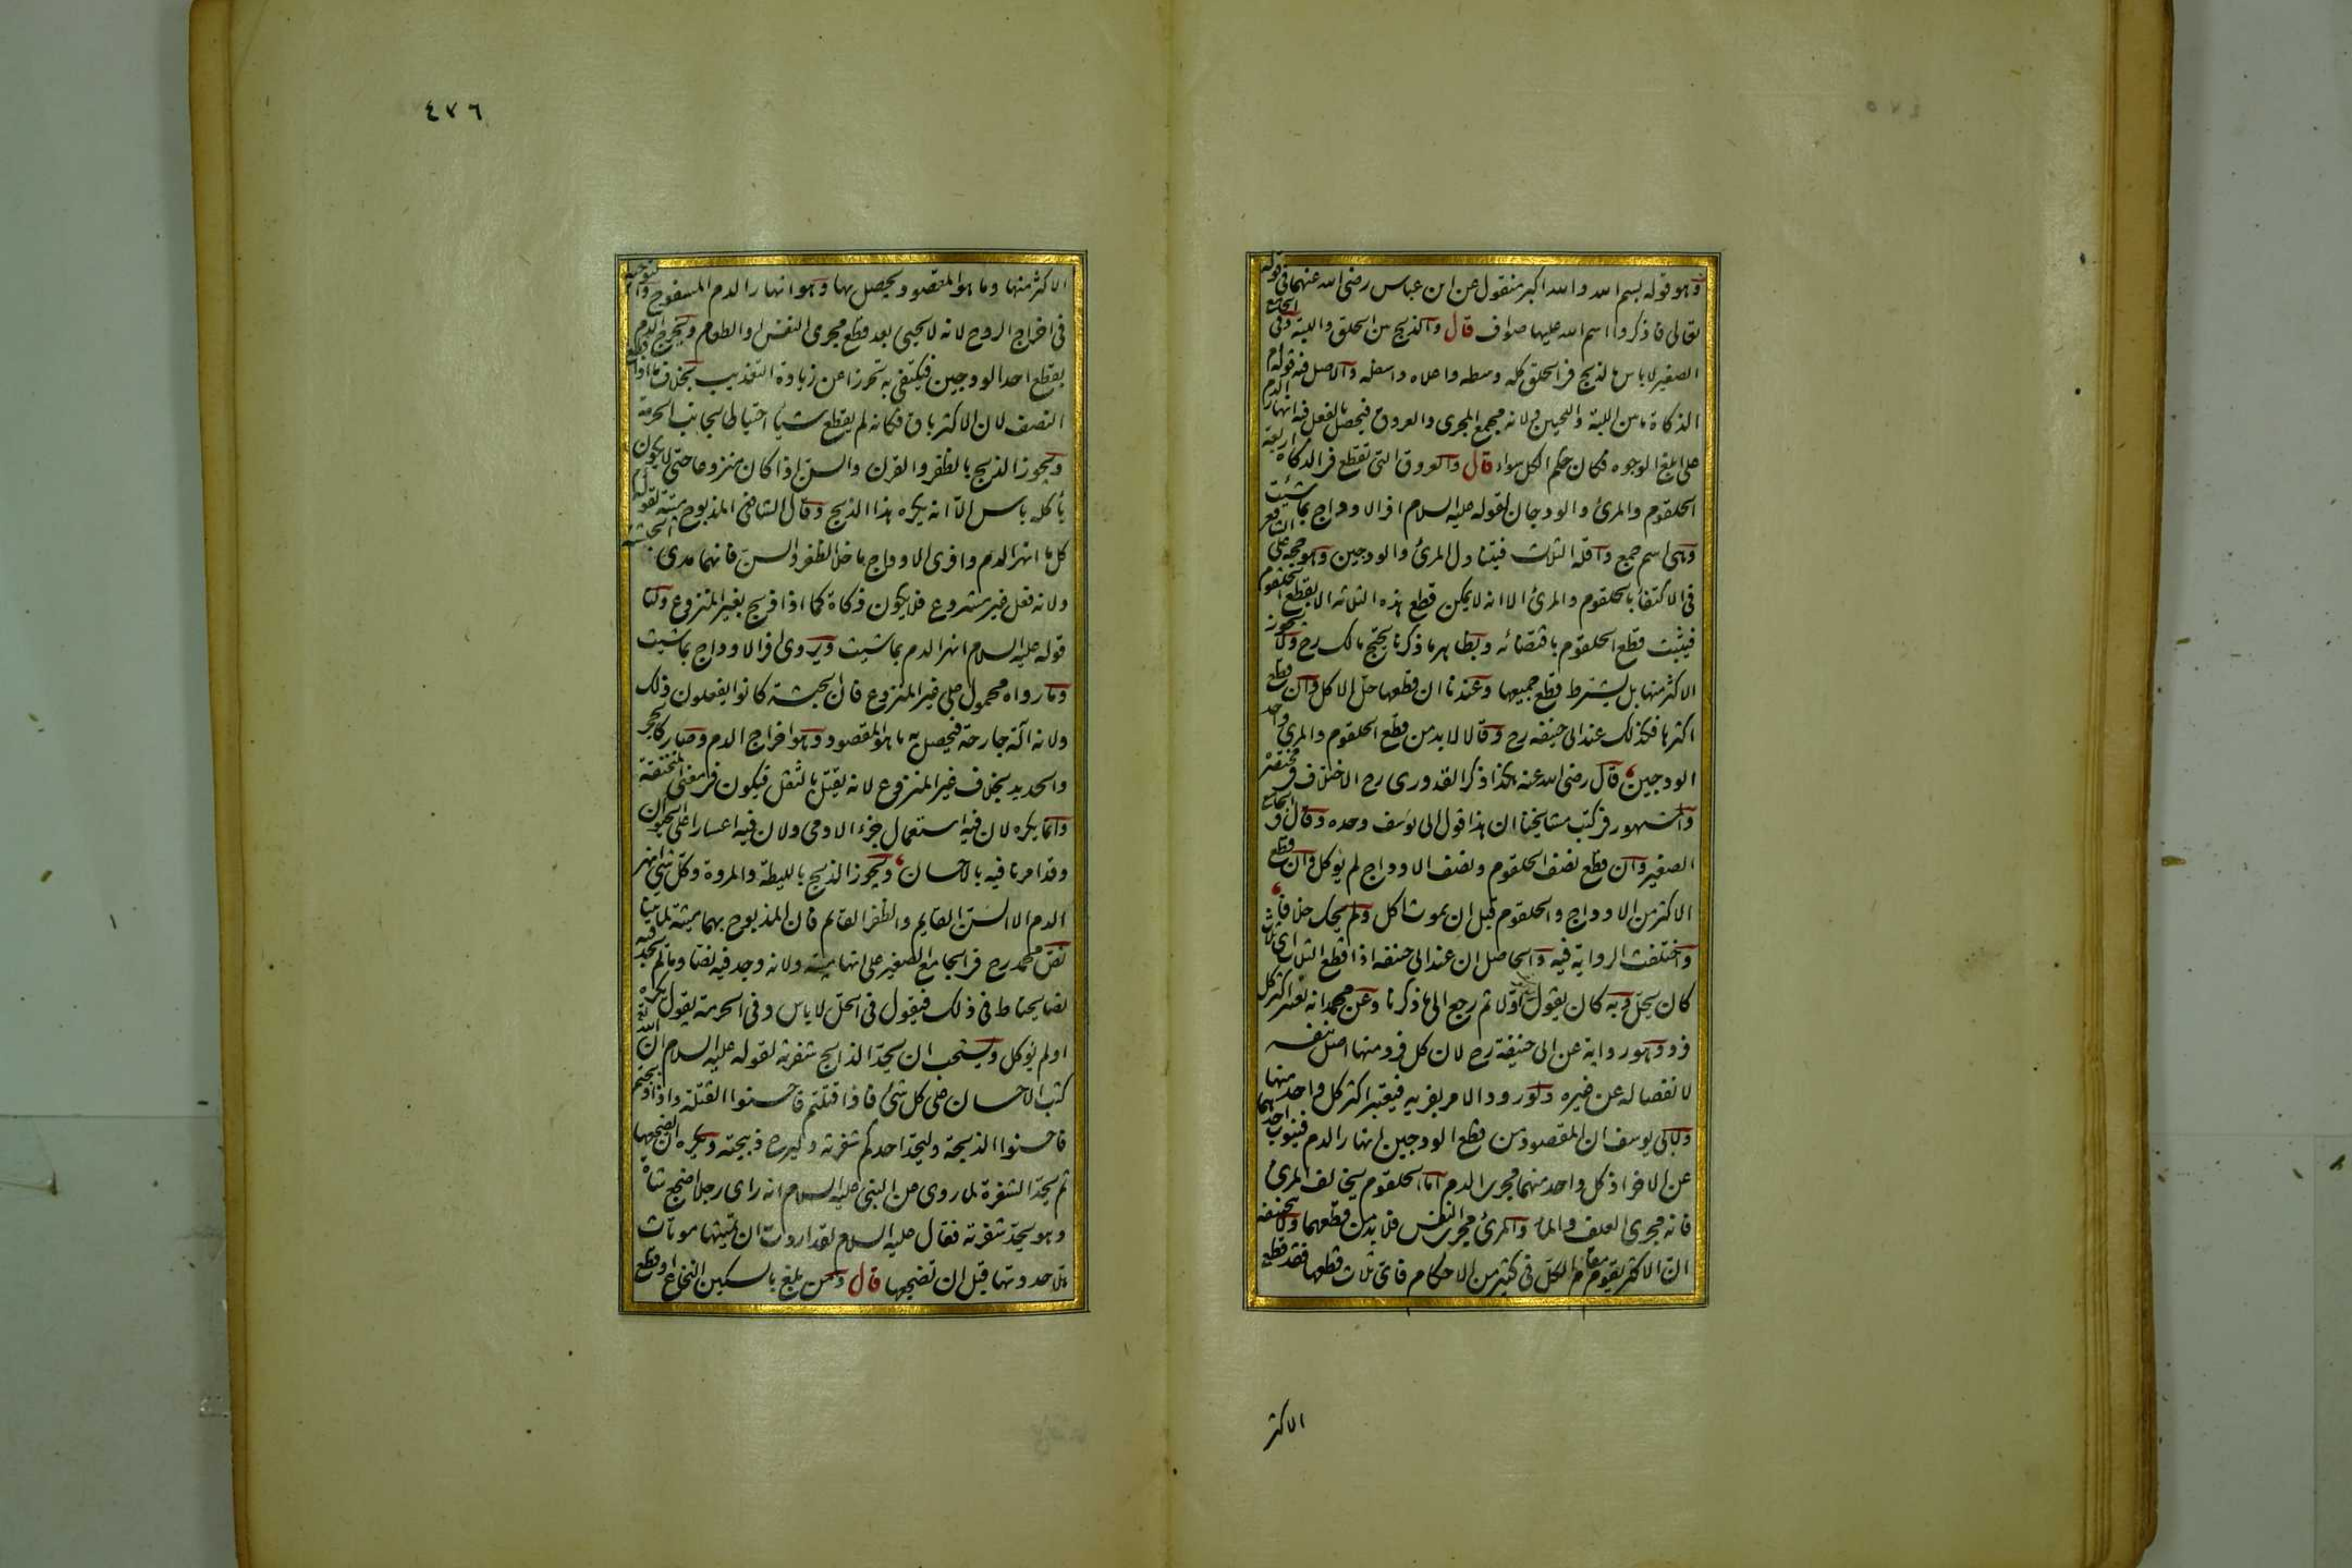 وهو قوله بسم الله والله اكبر منقول عن ابن عباس رضى الله عنهما فى قوله
تعالى فاذكروا اسم الله عليها صواف قال والذبح بين الحلق واللبة وفى الجامع
الصغير لا باس بالذبح فى الحلق كله وسطه واعلاه واسفله والاصل فيه قوله ع م
الذكاة ما بين اللبة واللحيين ولانه مجمع المجرى والعروق فيحصل بالفعل فيه انهار الدم
على ابلغ الوجوه فكان حكم الكل سواء قال والعروق التى تقطع فى الذكاة اربعة
الحلقوم والمرئ والودجان لقوله عليه السلام افر الاوداج بما شئت
وهى اسم جمع واقله الثلث فيتناول المرئ والودجين وهو حجة على الشافعى
فى الاكتفاء بالحلقوم والمرئ الا انه لا يمكن قطع هذه الثلاثة الا بقطع الحلقوم
فيثبت قطع الحلقوم باقتضائه وبظاهر ما ذكرنا يحتج مالك رح ولا يجوز
الاكثر منها بل يشترط قطع جميعها وعندنا ان قطعها حل الاكل وان قطع
اكثرها فكذلك عند ابى حنيفه رح وقالا لا بد من قطع الحلقوم والمرى واحد
الودجين قال رضى الله عنه هكذا ذكر القدورى رح الاختلاف فى مختصره
والمشهور فى كتب مشايخنا ان هذا قول ابى يوسف وحده وقال فى الجامع
الصغير وان قطع نصف الحلقوم ونصف الاوداج لم يؤكل وان قطع
الاكثر من الاوداج والحلقوم قبل ان يموت اكل ولم يحك خلافا
واختلفت الرواية فيه والحاصل ان عند ابى حنيفه اذا قطع الثلث اى ثلث
كان يحل وبه كان يقول اولا ثم رجع الى ما ذكرنا وعن محمد انه يعتبر اكثر كل
فرد وهو رواية عن ابى حنيفة رح لان كل فرد منها اصل بنفسه
لانفصاله عن غيره ولورود الامر بفريه فيعتبر اكثر كل واحد منها
ولابى يوسف ان المقصود من قطع الودجين انهار الدم فينوب احدهما
عن الاخر اذ كل واحد منهما مجرى الدم اما الحلقوم يخالف المرئ
فانه مجرى العلف والماء والمرئ مجرى النفس فلا بد من قطعهما ولابى حنيفه
ان الاكثر يقوم مقام الكل فى كثير من الاحكام فاى ثلاث قطعها فقد قطع
الاكثر
٤٧٦
الاكثر منها وما هو المقصود يحصل بها وهو انهار الدم المسفوح والتوحية
فى اخراج الروح لانه لا يحيى بعد قطع مجرى النفس او الطعام ويخرج الدم
بقطع احد الودجين فيكتفى به تحرزا عن زيادة التعذيب بخلاف ما اذا قطع
النصف لان الاكثر باق فكانه لم يقطع شيأ احتياطا لجانب الحرمة
ويجوز الذبح بالظفر والقرن والسن اذا كان منزوعا حتى لا يكون
بأكله باس الا انه يكره هذا الذبح وقال الشافعى المذبوح ميتة لقوله ع م
كل ما انهر الدم وافرى الاوداج ما خلا الظفر والسن فانهما مدى الحبشة
ولانه فعل غير مشروع فلا يكون ذكاة كما اذا ذبح بغير المنزوع ولنا
قوله عليه السلام انهر الدم بما شئت ويروى افر الاوداج بما شئت
وما رواه محمول على غير المنزوع فان الحبشة كانوا يفعلون ذلك
ولانه آلة جارحة فيحصل به ما هو المقصود وهو اخراج الدم وصار كالحجر
والحديد بخلاف غير المنزوع لانه يقتل بالثقل فيكون فى معنى المنخنقة
وانما يكره لان فيه استعمال جزء الادمى ولان فيه اعسارا على الحيوان
وقد امرنا فيه بالاحسان ويجوز الذبح بالليطة والمروة وكل شئ انهر
الدم الا السن القايم والظفر القائم فان المذبوح بهما ميتة لما بينا
نص محمد رح فى الجامع الصغير على انها ميتة ولانه وجد فيه نصا وما لم يجد فيه
نصا يحتاط فى ذلك فيقول فى الحل لا باس وفى الحرمة يقول يكره
او لم يؤكل ويستحب ان يحد الذابح شفرته لقوله عليه السلام ان الله تع
كتب الاحسان على كل شئ فاذا قتلتم فاحسنوا القتلة واذا ذبحتم
فاحسنوا الذبحة وليحد احدكم شفرته وليرح ذبيحته ويكره ان يضجعها
ثم يحد الشفرة لما روى عن النبى عليه السلام انه راى رجلا اضجع شاة
وهو يحد شفرته فقال عليه السلام لقد اردت ان تميتها موتات
هلا حددتها قبل ان تضجعها قال ومن بلغ بالسكين النخاع او قطع